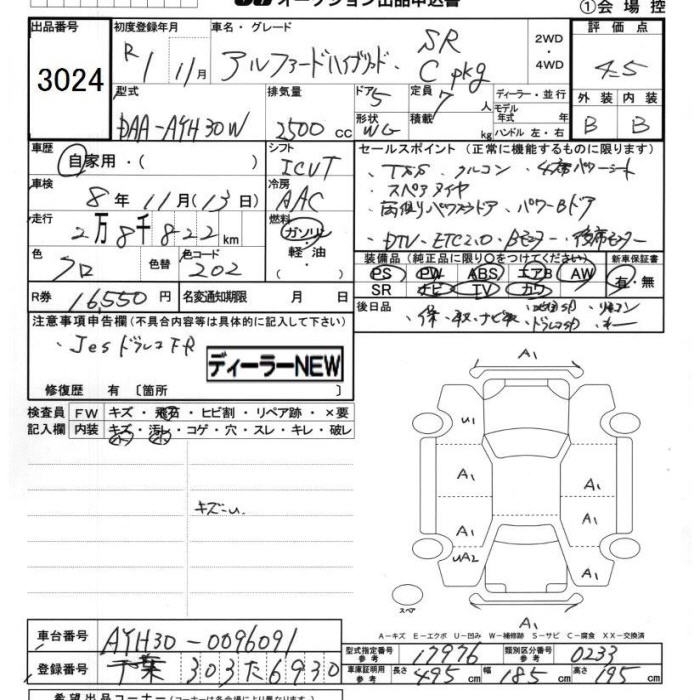 オークション出品申込書
①会場控
出品番号
3024
初度登録年月
R1 11月
車名・グレード
アルファードハイブリッド. SR
C pkg
2WD
・
4WD
評価点
4.5
外装 内装
B B
型式
DAA-AYH30W
排気量
2500cc
ドア 5
形状 WG
定員 7人
積載 kg
ディーラー・並行
モデル
年式 年
ハンドル 左・右
車歴
自家用・( )
シフト
ICVT
車検
8年11月(13日)
冷房
AAC
走行
2万8千822km
燃料
ガソリン
・
軽油
( )
色
クロ
色替
色コード
202
R券 16,550円
名変通知期限 月 日
セールスポイント(正常に機能するものに限ります)
・TSS、クルコン、4席パワーシート
・スペアタイヤ
・両側パワースライドドア、パワーBドア
・DTV、ETC2.0、Bモニター、後席モニター
装備品(純正品に限り○をつけてください)
PS PW ABS エアB AW
SR ナビ TV カワ
新車保証書
有・無
後日品
・保・取、ナビ取、
注意事項申告欄(不具合内容等は具体的に記入して下さい)
・Jesドラレコ FR
ディーラーNEW
修復歴 有〔箇所 〕
検査員 FW キズ・飛石・ヒビ割・リペア跡・×要
記入欄 内装 キズ・汚レ・コゲ・穴・スレ・キレ・破レ
キズ小U.
A1
U1
A1
A1
A1
A1
UA2
A1
A1
スペア
A-キズ E-エクボ U-凹み W-補修跡 S-サビ C-腐食 XX-交換済
車台番号 AYH30-0096091
登録番号 千葉 303 た 6930
型式指定番号
参考 17976
類別区分番号
参考 0233
車庫証明用
参考 長さ 495cm 幅 185cm 高さ 195cm
希望出品コーナー(コーナーは各会場により異なります)